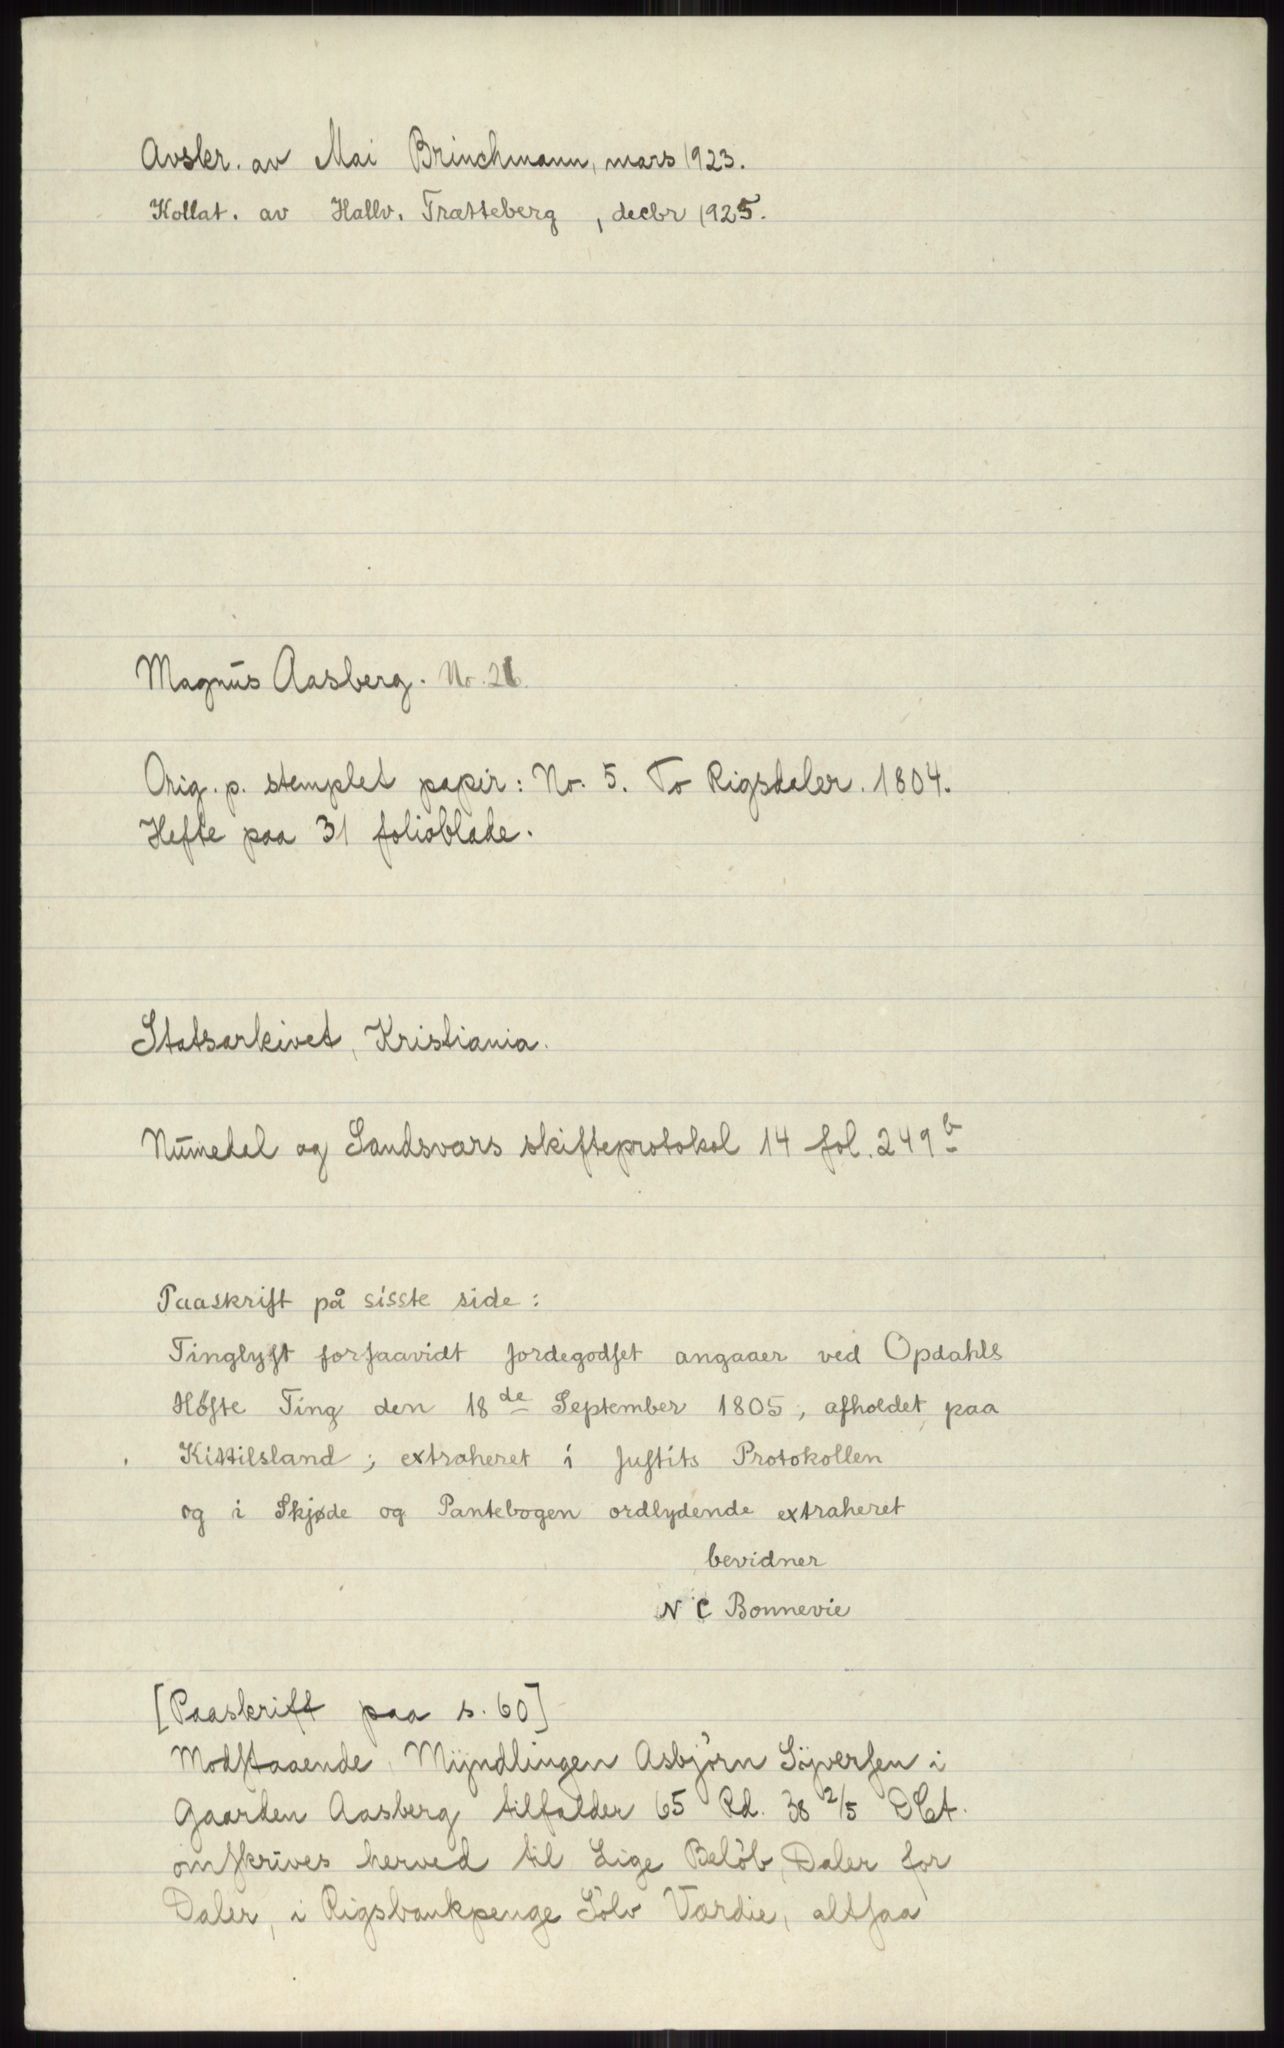 Avskr. av Mai Brinchmann, mars 1923.
Kollat. av Hallv. Trætteberg, decbr 1925.
Magnus Aasberg. No. 21
Orig. p. stemplet papir: No. 5. To Rigsdaler. 1804.
Hefte paa 31 folioblade.
Statsarkivet, Kristiania.
Numedal og Sandsværs skifteprotokol 14 fol. 249 b
Paaskrift på sisste side:
Tinglyst forsaavidt Jordegodset angaaer ved Opdahls
Høste Ting den 18de September 1805, afholdet paa
Kittilsland; extraheret i Justits Protokollen
og i Skjøde og Pantebogen ordlydende extraheret
bevidner
N C Bonnevie
[Paaskrift paa s. 60]
Modstaaende Myndlingen Asbjørn Syversen i
Gaarden Aasberg tilfalder 65 Rd. 38 2/5 DCt.
omskrives herved til Lige Beløb, Daler for
Daler, i Rigsbankpenge Sølv Værdie, altsaa